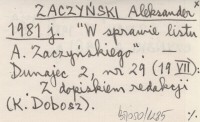 ZACZYŃSKI Aleksander x
1981 j. "W sprawie listu
A. Zaczyńskiego". —
Dunajec 2 nr 29 (19 VII):
Z dopiskiem redakcji
(K. Dobosz).